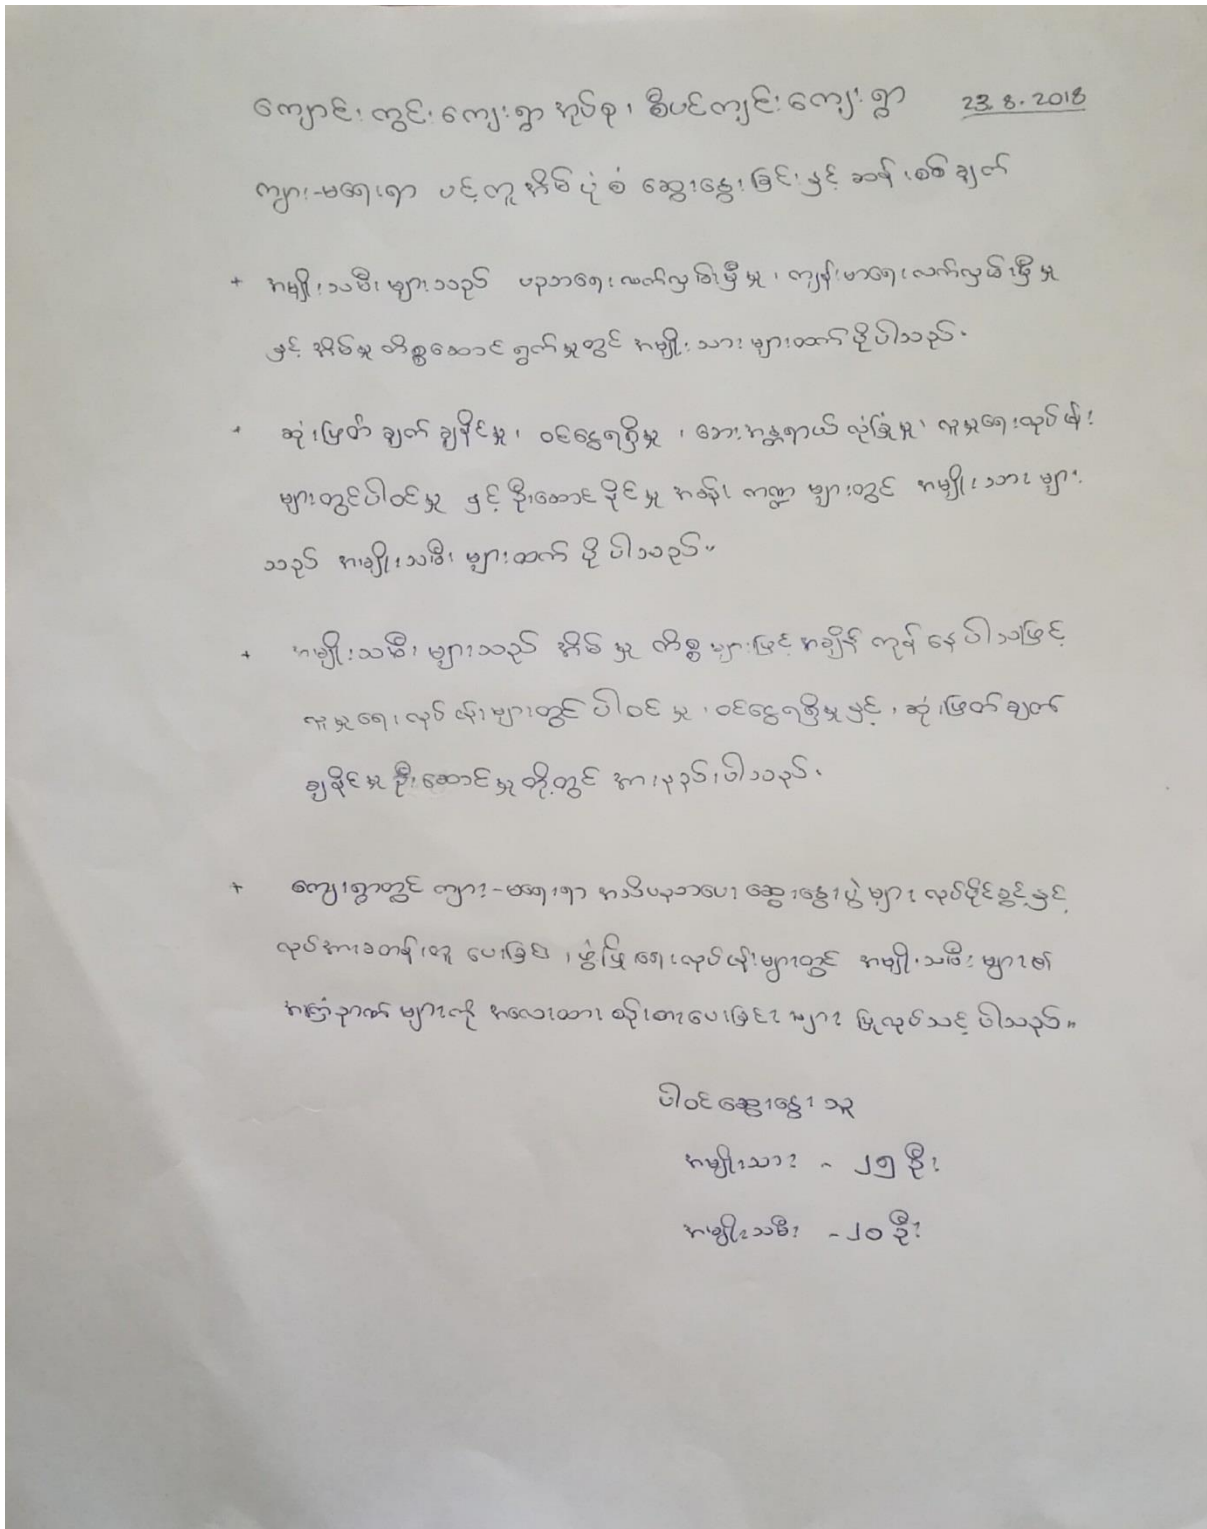 ကျောင်းကွင်းကျေးရွာအုပ်စု၊ စီပင်ကျင်းကျေးရွာ 23.8.2018
ကျား-မရေးရာ ပင့်ကူအိမ်ပုံစံ ဆွေးနွေးခြင်းနှင့် ဆန်းစစ်ချက်
+ အမျိုးသမီးများသည် ပညာရေးလက်လှမ်းမှီမှု၊ ကျန်းမာရေးလက်လှမ်းမှီမှု
နှင့် အိမ်မှုကိစ္စဆောင်ရွက်မှုတွင် အမျိုးသားများထက်ပိုပါသည်။
+ ဆုံးဖြတ်ချက်ချနိုင်မှု၊ ဝင်ငွေရရှိမှု၊ ဘေးအန္တရာယ်လုံခြုံမှု၊ လူမှုရေးလုပ်ငန်း
များတွင်ပါဝင်မှု နှင့် ဦးဆောင်နိုင်မှု အခန်းကဏ္ဍများတွင် အမျိုးသားများ
သည် အမျိုးသမီးများထက် ပိုပါသည်။
+ အမျိုးသမီးများသည် အိမ်မှုကိစ္စများဖြင့် အချိန်ကုန်နေပါသဖြင့်
လူမှုရေးလုပ်ငန်းများတွင် ပါဝင်မှု၊ ဝင်ငွေရရှိမှုနှင့်၊ ဆုံးဖြတ်ချက်
ချနိုင်မှု ဦးဆောင်မှုတို့တွင် အားနည်းပါသည်။
+ ကျေးရွာတွင် ကျား-မရေးရာ အသိပညာပေး ဆွေးနွေးပွဲများ လုပ်ပိုင်ခွင့်နှင့်
လုပ်အားခတန်းတူ ပေးခြင်း၊ ဖွံ့ဖြိုးရေးလုပ်ငန်းများတွင် အမျိုးသမီးများ၏
အကြံဉာဏ်များကို အလေးထား စဉ်းစားပေးခြင်းများ ပြုလုပ်သင့်ပါသည်။
ပါဝင်ဆွေးနွေးသူ
အမျိုးသား - ၂၅ ဦး
အမျိုးသမီး - ၂၀ ဦး